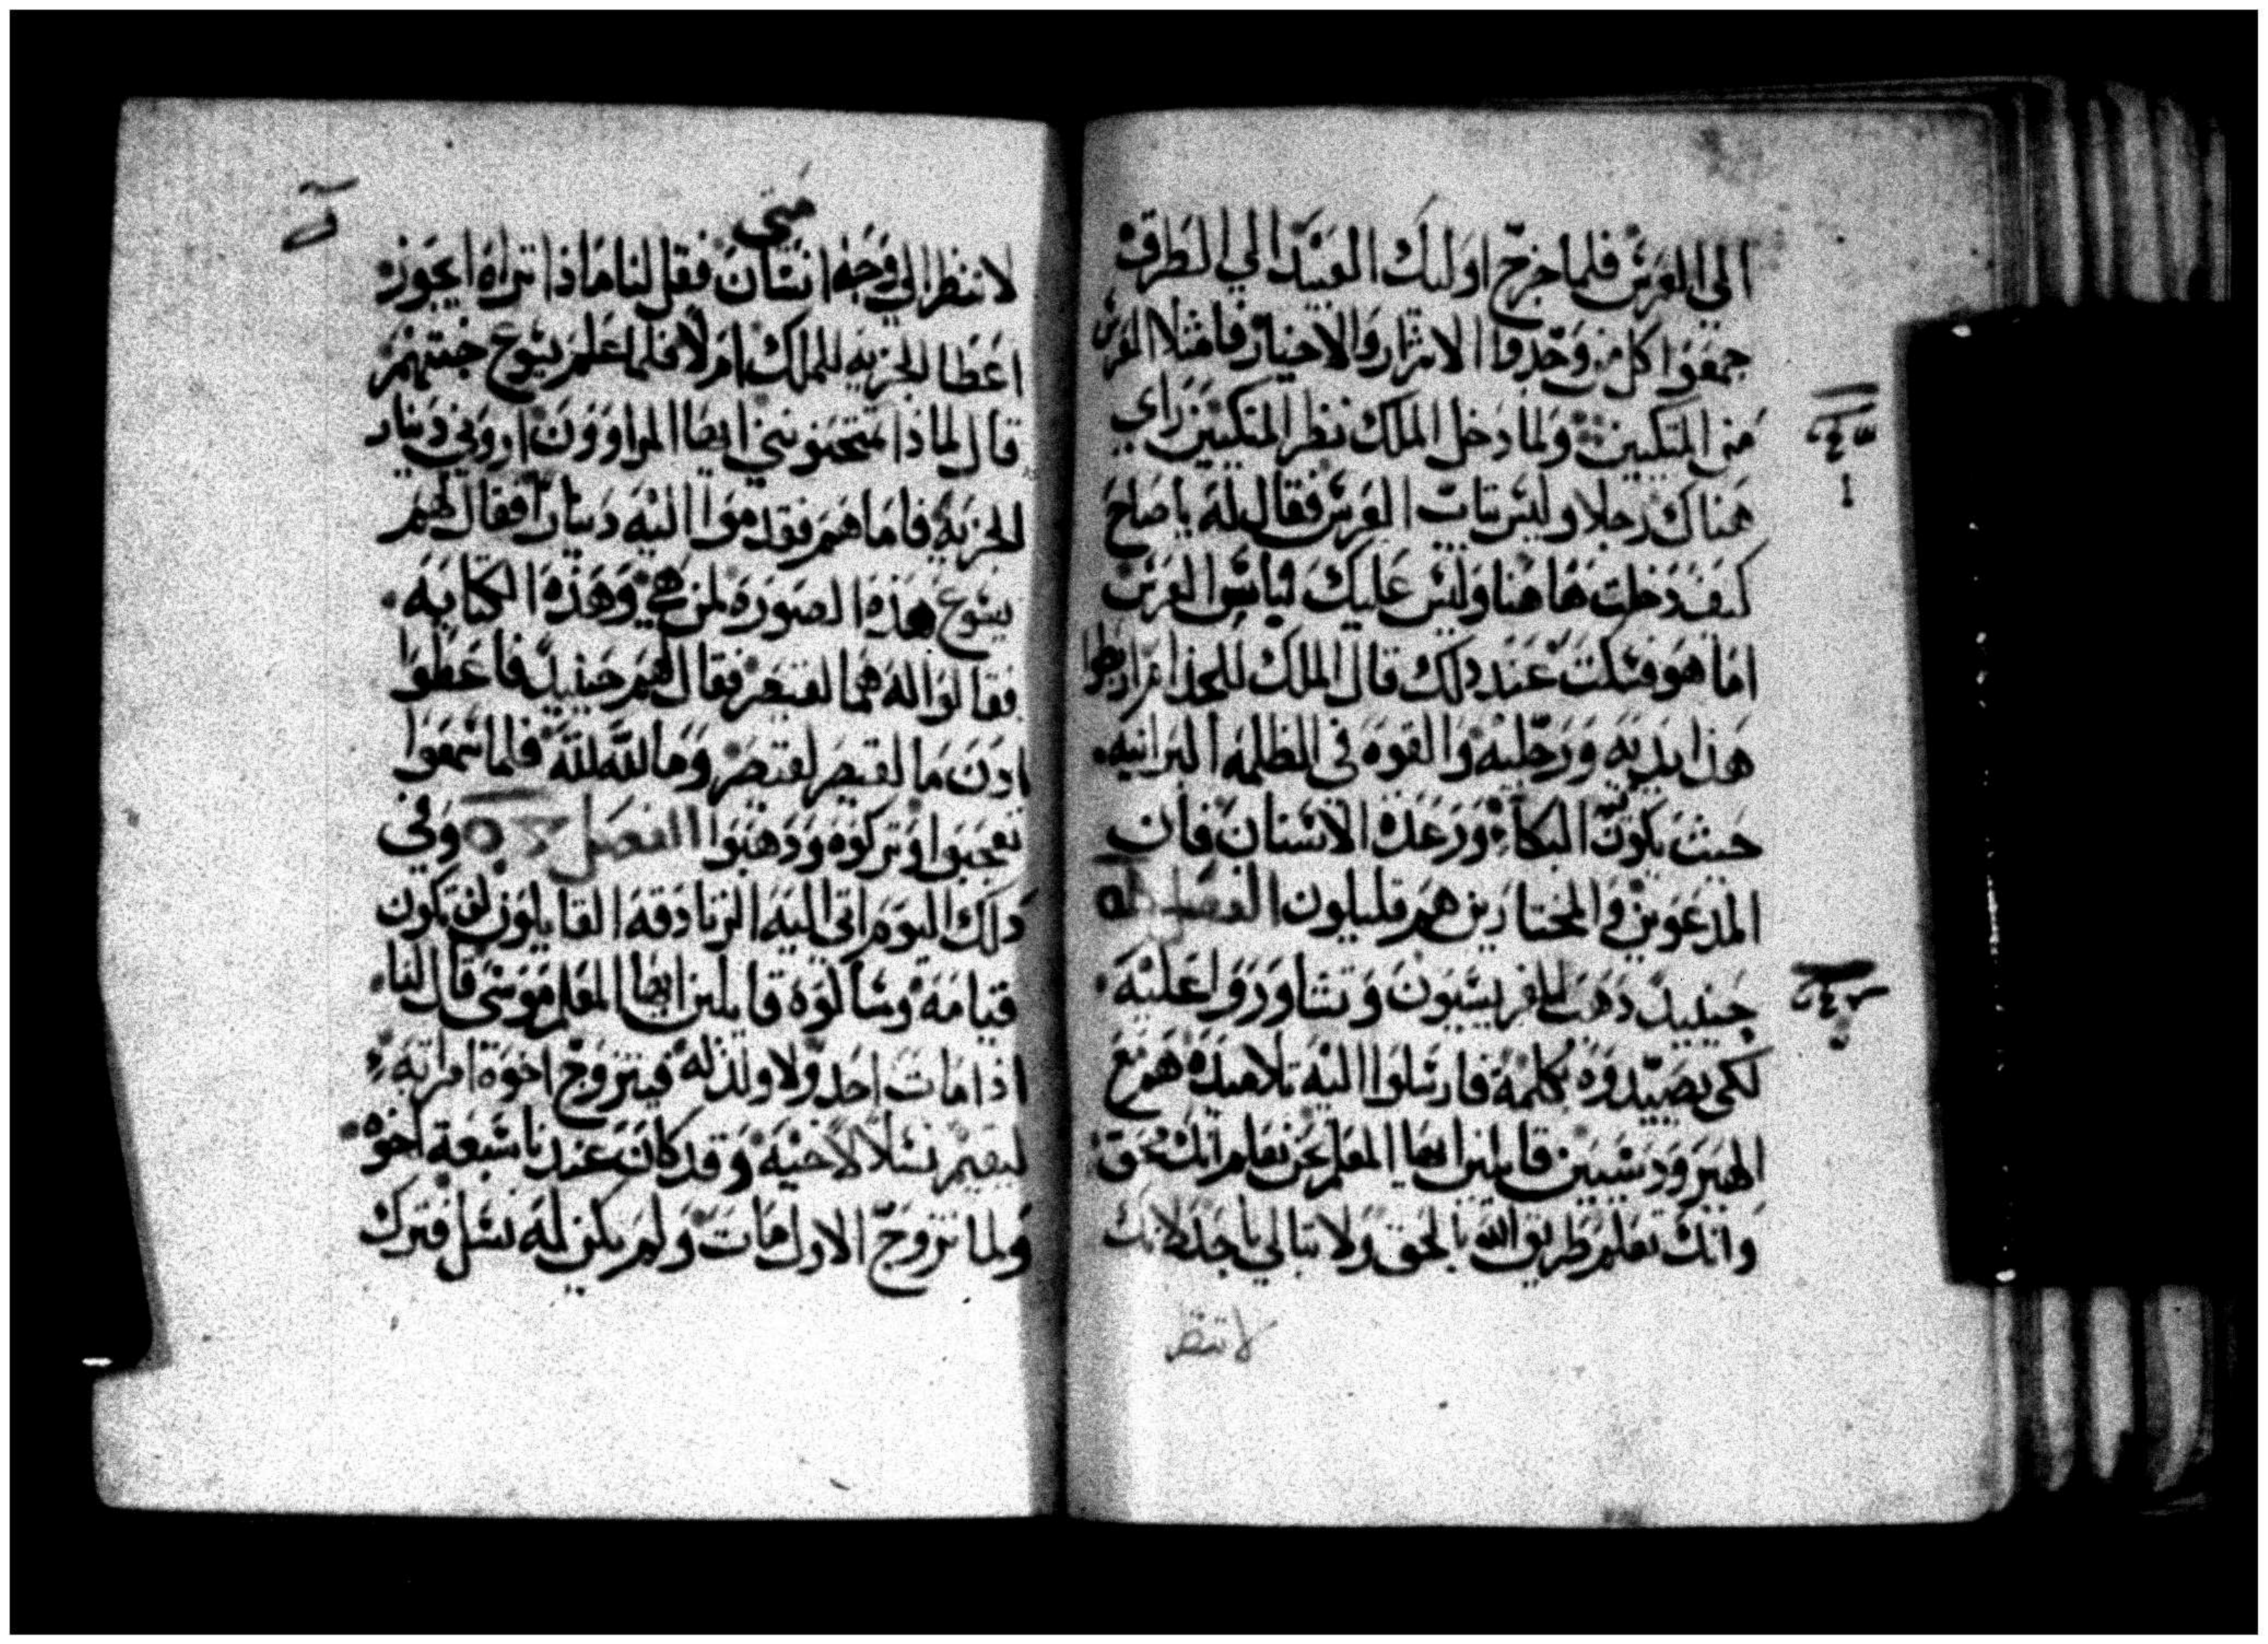 الي العرس فلما خرج اوليك العبيد الي الطرق
جمعوا كل من وجدوا الاشرار والاخيار فامتلا العرس
من المتكيين ولما دخل الملك نظر المتكيين راي
هناك رجلا وليس تياب العرس فقال له يا صاح
كيف دخلت هاهنا وليس عليك لباس العرس
اما هو فسكت عند دلك قال الملك للخدام اربطوا
هذا يديه ورجليه والقوه في الظلمه البرانيه
حيث يكون البكاء ورعدة الاسنان فان
المدعوين والمختارين هم قليلون الفصل
حينيد دهب الفريسيون وتشاوروا عليه
لكي يصيدوه بكلمة فارسلوا اليه تلاميده مع
الهيرودسيين قايلين ايها المعلم نحن نعلم انك محق
وانك تعلم طريق الله بالحق ولا تبالي باحد لانك
لا تنظر
متي
لا تنظر الي وجه انسان فقل لنا ماذا تراه ايجوز
اعطا الجزيه للملك ام لا فلما علم يسوع خبتهم
قال لماذا تمتحنونني ايها المراوون اروني دينار
الجزية فاما هم فقدموا اليه دينارا فقال لهم
يسوع هذه الصوره لمن هي وهذه الكتابه
فقالوا له هما لقيصر فقال لهم حينيد فاعطوا
ادن ما لقيصر لقيصر وما لله لله فلما سمعوا
تعجبوا وتركوه ودهبوا الفصل وفي
دلك اليوم اتي اليه الزنادقه القايلون لن تكون
قيامه وسالوه قايلين ايها المعلم موسي قال لنا
اذا مات احد ولا ولد له فيتزوج اخوه امراته
ليقيم نسلا لاخيه وقد كان عندنا سبعة اخوه
ولما تزوج الاول مات ولم يكن له نسل فترك